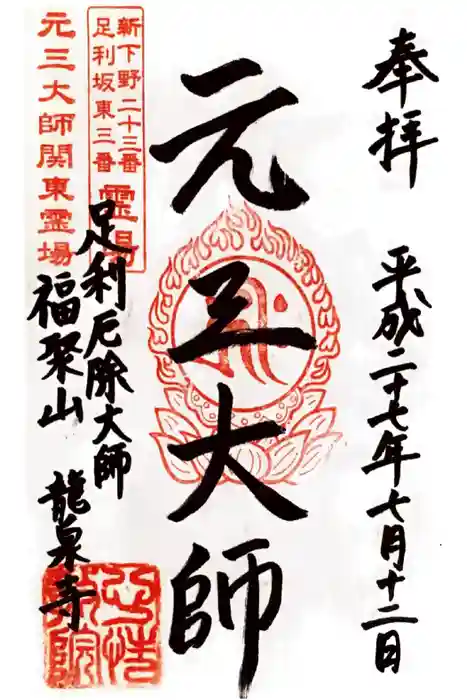 奉拝
平成二十七年七月十二日
元三大師
新下野二十三番
足利坂東三番
霊場
元三大師関東霊場
足利厄除大師
福聚山 龍泉寺